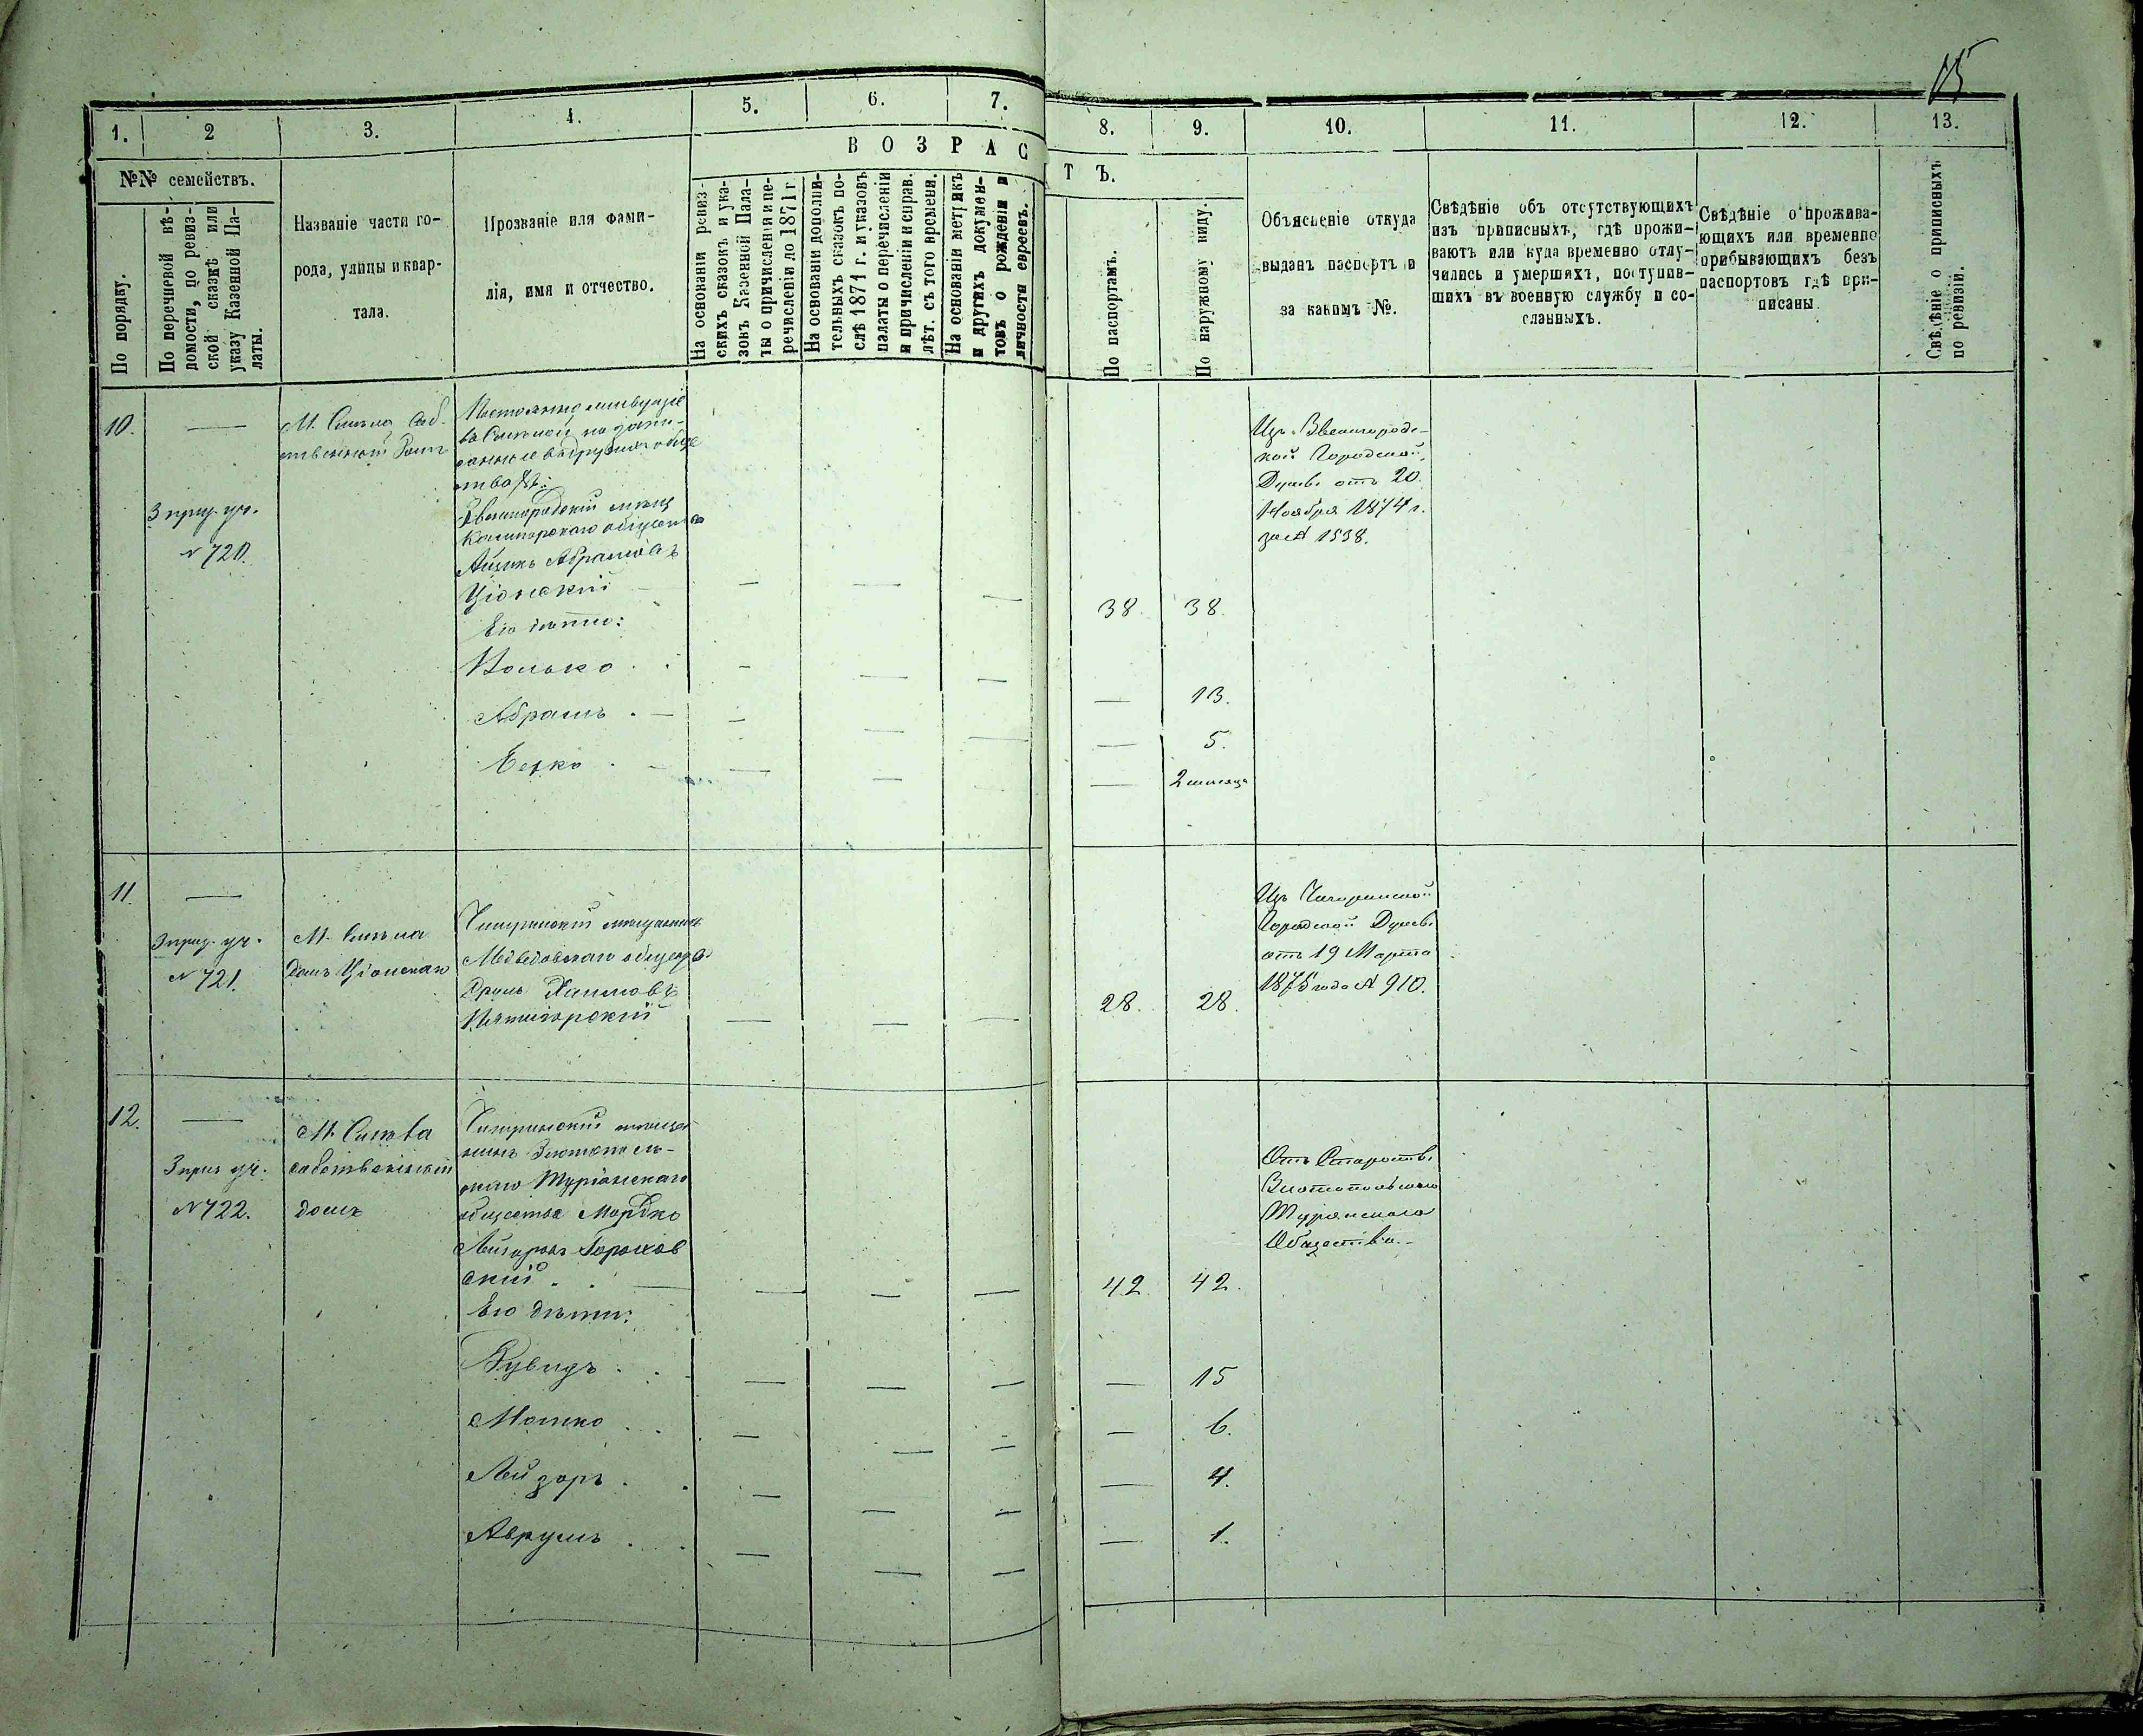 15
1.
2
3.
4.
5.
6.
7.
8.
9.
10.
11.
12.
13.
В О З Р А С
Т Ъ.
№№ семействъ.
По порядку.
По перечневой вѣ-
домости, по ревиз-
ской сказкѣ или
указу Казенной Па-
латы.
Названіе части го-
рода, улицы и квар-
тала.
Прозваніе или фами-
лія, имя и отчество.
На основаніи ревиз-
скихъ сказокъ и ука-
зовъ Казенной Пала-
ты о причисленіи и пе-
речисленіи до 1871 г.
На основаніи дополни-
тельныхъ сказокъ по-
слѣ 1871 г. и указовъ
палаты о перечисленіи
и причисленіи и справ.
лѣт. съ того времени.
На основаніи метрикъ
и другихъ докумен-
товъ о рожденіи и
личности евреевъ.
По паспортамъ.
По наружному виду.
Объясненіе откуда
выданъ паспортъ и
за какимъ №.
Свѣдѣніе объ отсутствующихъ
изъ приписныхъ, гдѣ прожи-
ваютъ или куда временно отлу-
чились и умершихъ, поступив-
шихъ въ военную службу и со-
сланныхъ.
Свѣдѣніе о прожива-
ющихъ или временно
прибывающихъ безъ
паспортовъ гдѣ при-
писаны.
Свѣдѣніе о приписныхъ
по ревизіи.
10.
3 приз. уч.
№ 720.
М. Смѣла Соб-
ственный Домъ
Постоянно живущіе
въ Смѣлой но запи-
санные въ другихъ обще
ствахъ:
Звенигородскій мѣщ
общества
Айзикъ Абрамовъ
Ціонскій
Его дѣти:
Волько
Абрамъ
Берко
38. 38.
13.
5.
2 мѣсяца
Изъ Звенигородс-
кой Городской
Думы отъ 20
Ноября 1874 г.
за № 1538.
11.
3 приз. уч.
№ 721.
М. Смѣла
Домъ Ціонскаго
Чигиринскій мѣщанинъ
Медведовскаго общества
Сруль Хаимовъ
Пятигорскій
28. 28.
Изъ Чигиринской
Городской Думы
отъ 19 Марта
1875 года № 910.
12.
3 приз уч.
№ 722.
М. Смѣла
собственный
домъ
Чигиринскій мѣща
нинъ Златополь-
скаго Турiянскаго
общества Мордко
Лейзоровъ Горохов
скій
Его дѣти:
Дувидъ
Мошко
Лейзоръ
Аврумъ
42. 42.
15
6.
4.
1.
Отъ Старосты
Златопольскаго
Турiянскаго
Общества.